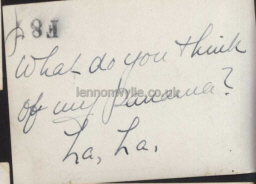 F81
What do you think
of my Panama?
La, La.
lennonwylie.co.uk